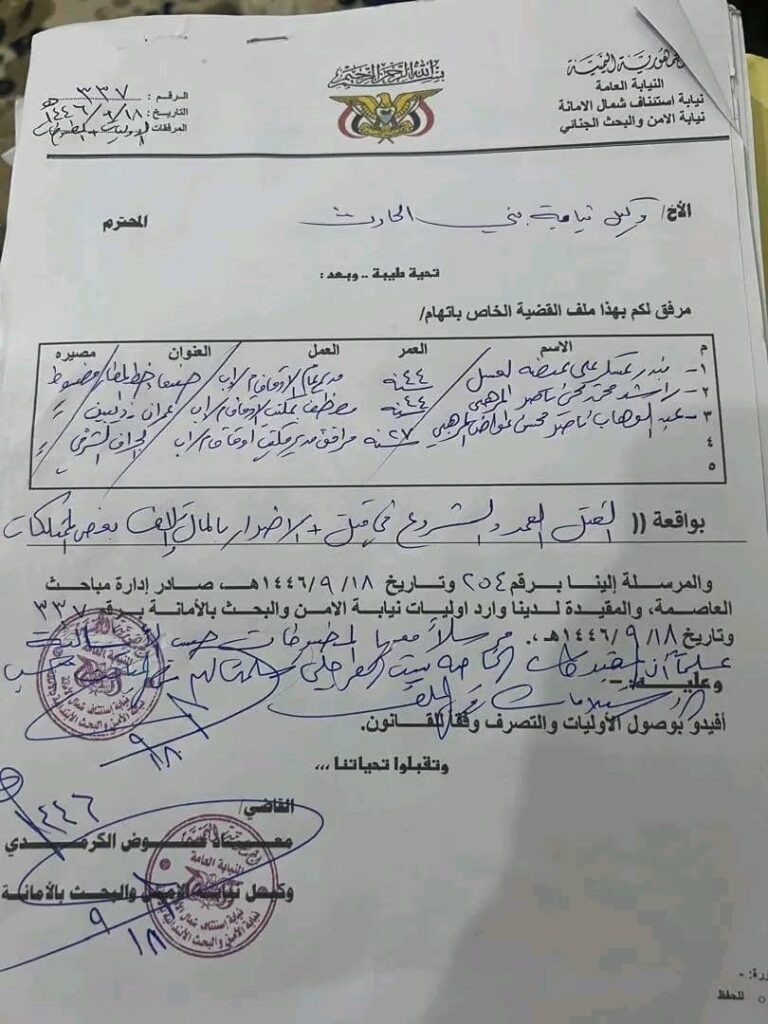 الجمهورية اليمنية
النيابة العامة
نيابة استئناف شمال الامانة
نيابة الامن والبحث الجنائي
بسم الله الرحمن الرحيم
الرقم : ٣٣٧
التاريخ : ١٨/ ٩/ ١٤٤٦هـ
المرفقات : الاوليات + المضبوطات
الأخ/ وكيل نيابة بني الحارث المحترم
تحية طيبة .. وبعد :
مرفق لكم بهذا ملف القضية الخاص باتهام/
م الاسم العمر العمل العنوان مصيره
١- علي ٤٤ سنة مدير عام الاوقاف م/اب صنعاء مضبوط
٢- راشد محمد محسن ناصر المرهبي ٤٤ سنة موظف بمكتب الاوقاف م/اب عمران = 
٣- عبد الوهاب ناصر محسن المرهبي ٢٧ سنة مرافق مدير مكتب اوقاف م/اب الجراف الشرقي =
٤
٥
بواقعة (( القتل العمد والشروع في قتل + الاضرار بالمال واتلاف بعض الممتلكات
والمرسلة إلينا برقم ٢٥٤ وتاريخ ١٨/ ٩/ ١٤٤٦هـ، صادر إدارة مباحث
العاصمة، والمقيدة لدينا وارد اوليات نيابة الامن والبحث بالأمانة برقم ٣٣٧
وتاريخ ١٨/ ٩/ ١٤٤٦هـ ،. مرسلاً معها المضبوطات حسب
علماً أن الخاصة ببيت
وعليه: -
أفيدو بوصول الأوليات والتصرف وفقاً للقانون.
وتقبلوا تحياتنا ,,,
القاضي/
عوض الكرمدي
وكيل نيابة الامن والبحث بالأمانة
١٨ ٩ ١٤٤٦
النيابة العامة
نيابة إستئناف شمال الأمانة
نيابة الأمن والبحث الابتدائية
صورة: -
للحفظ